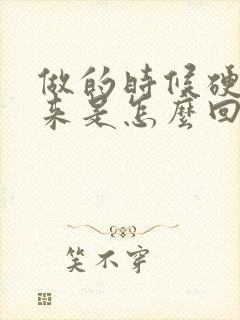 做的時候硬
来是怎麼回
笑不穿